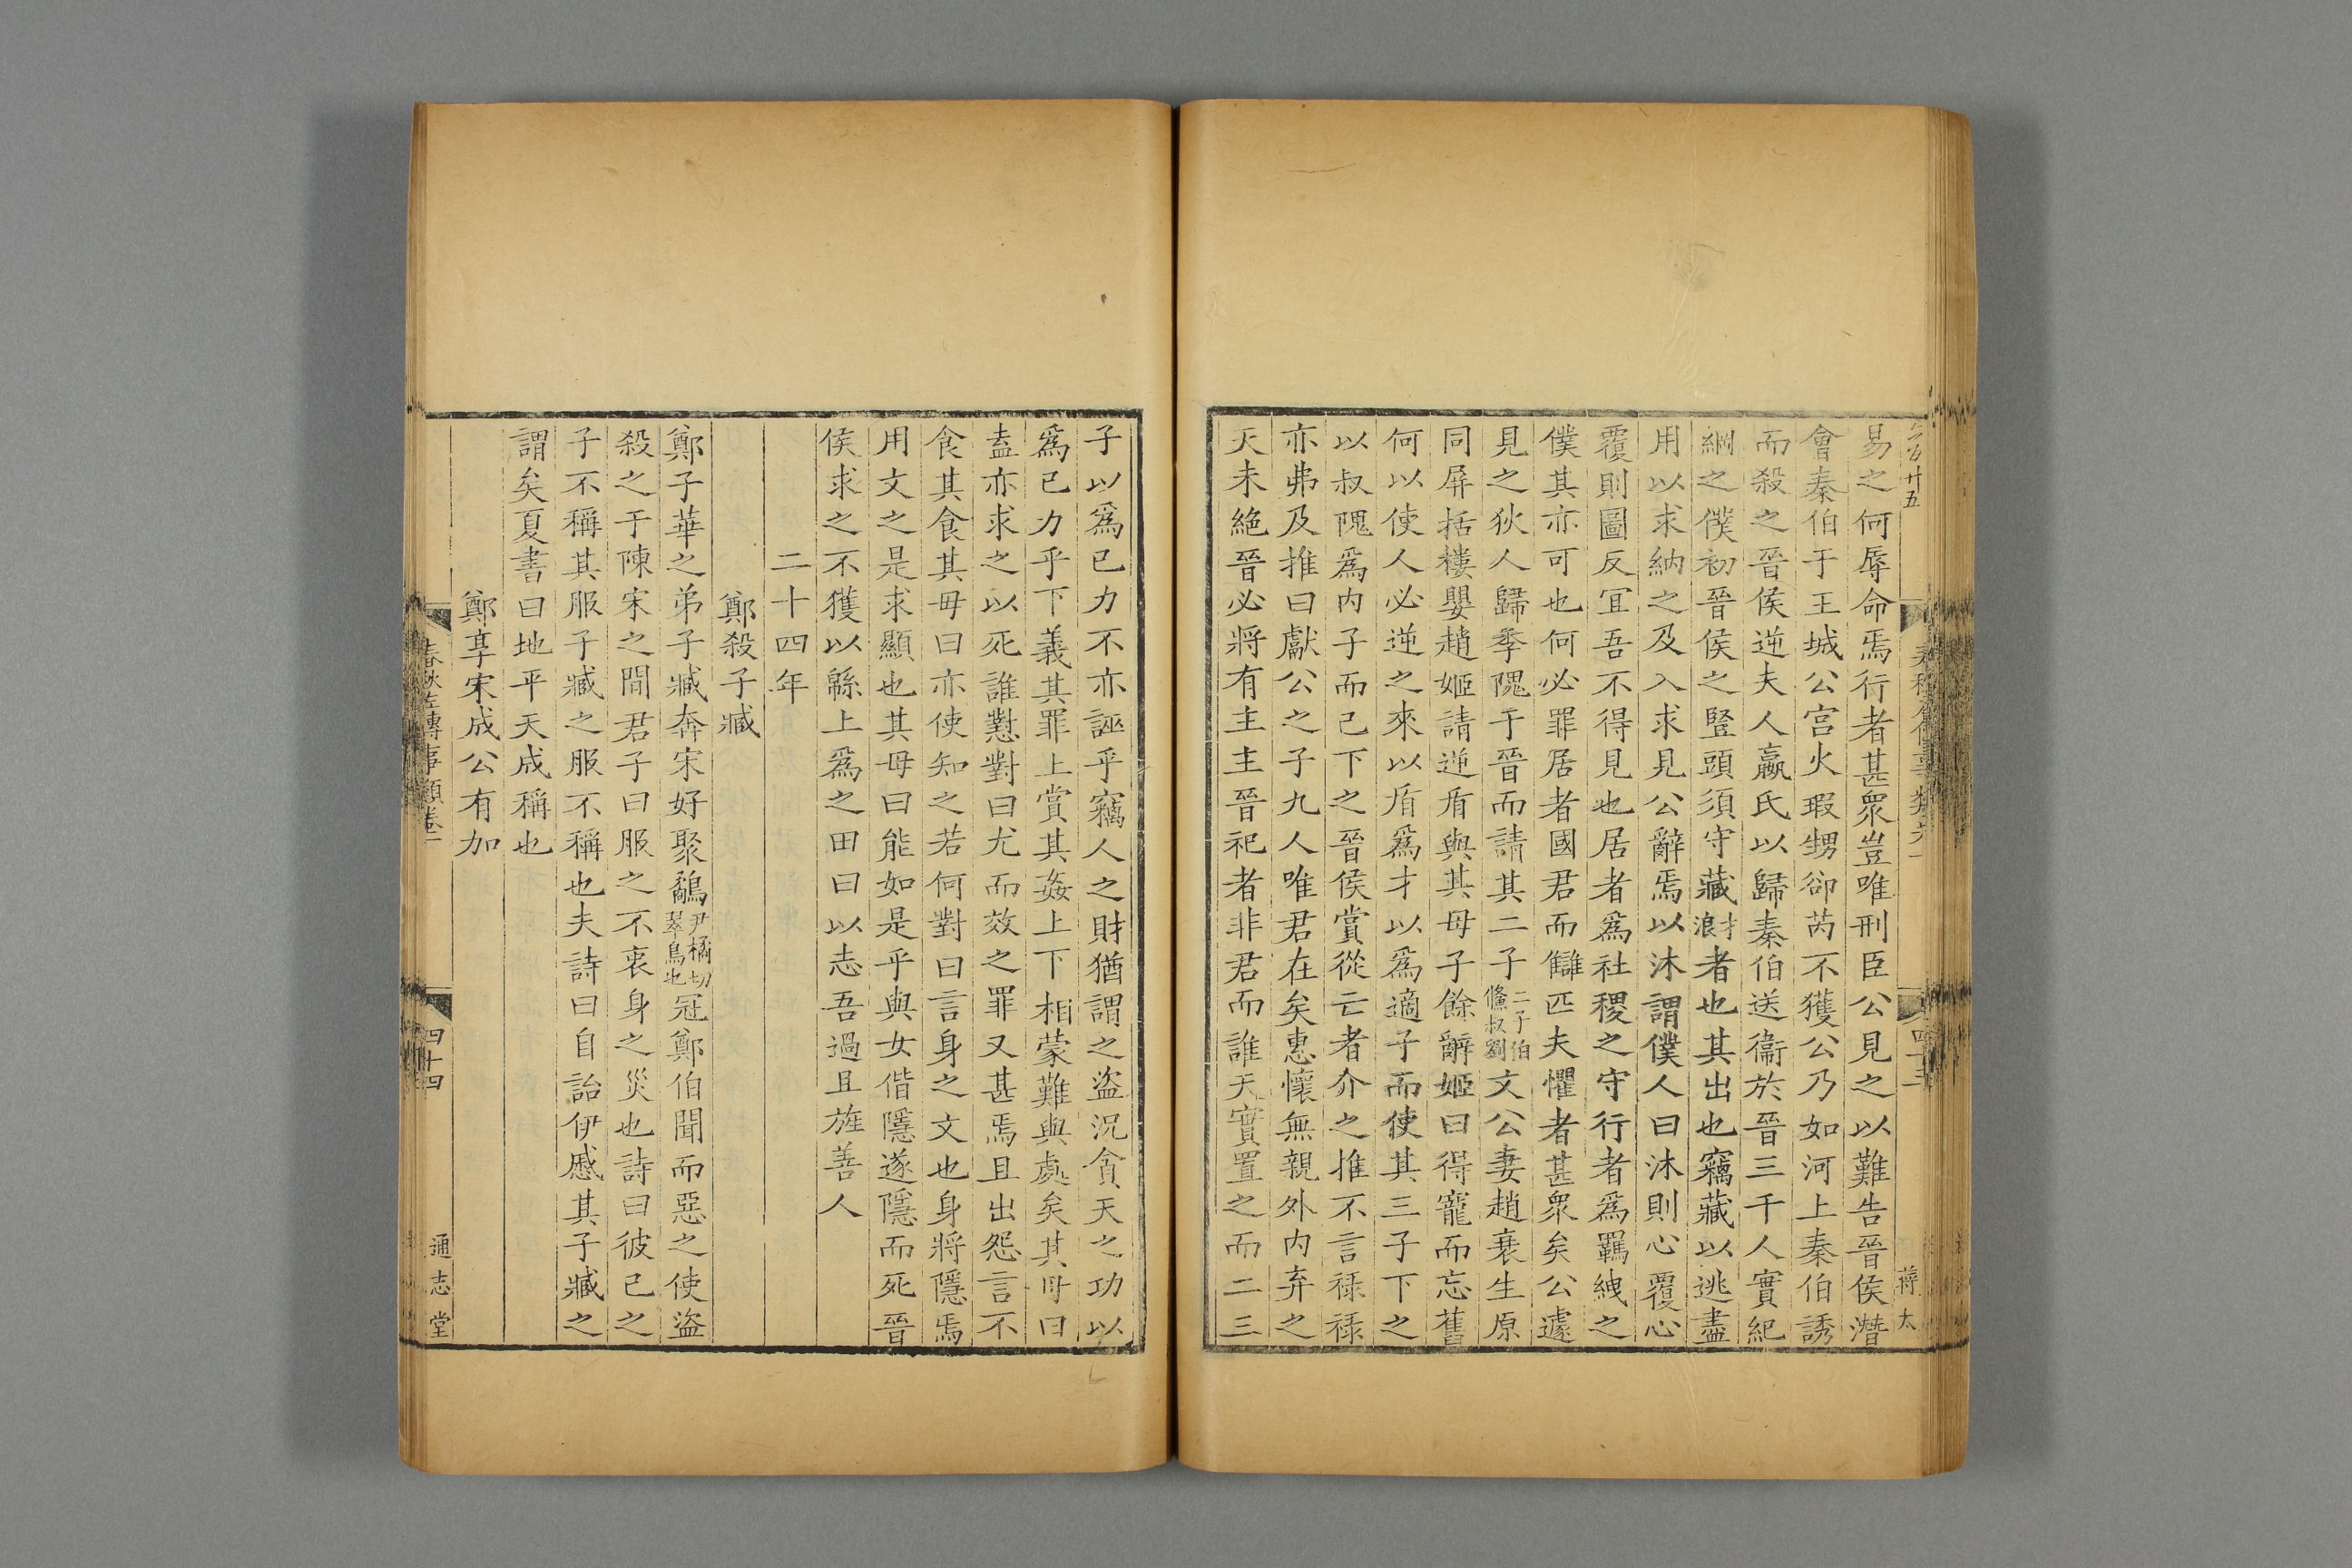 易之何辱命焉行者甚衆豈唯刑臣公見之以難告晉侯潛
會秦伯于王城公宫火瑕甥郤芮不獲公乃如河上秦伯誘
而殺之晉侯逆夫人嬴氏以歸秦伯送衞於晉三千人實紀
綱之僕初晉侯之豎頭須守藏才浪者也其出也竊藏以逃盡
用以求納之及入求見公辭焉以沐謂僕人曰沐則心覆心
覆則圖反宜吾不得見也居者爲社稷之守行者爲羈絏之
僕其亦可也何必罪居者國君而讎匹夫懼者甚衆矣公遽
見之狄人歸季隗于晉而請其二子二子伯鯈叔劉文公妻趙衰生原
同屏括樓嬰趙姬請逆盾與其母子餘辭姬曰得寵而忘舊
何以使人必逆之來以盾爲才以爲適子而使其三子下之
以叔隗爲内子而己下之晉侯賞從亡者介之推不言禄禄
亦弗及推曰獻公之子九人唯君在矣惠懷無親外内弃之
天未絶晉必將有主主晉祀者非君而誰天實置之而二三
蔣太
子以爲已力不亦誣乎竊人之財猶謂之盜況貪天之功以
爲已力乎下義其罪上賞其姦上下相蒙難與處矣其母曰
盍亦求之以死誰懟對曰尤而效之罪又甚焉且出怨言不
食其食其母曰亦使知之若何對曰言身之文也身將隱焉
用文之是求顯也其母曰能如是乎與女偕隱遂隱而死晉
侯求之不獲以緜上爲之田曰以志吾過且旌善人
二十四年
鄭殺子臧
鄭子華之弟子臧奔宋好聚鷸尹橘切翠鳥也冠鄭伯聞而惡之使盜
殺之于陳宋之間君子曰服之不衷身之災也詩曰彼已之
子不稱其服子臧之服不稱也夫詩曰自詒伊慼其子臧之
謂矣夏書曰地平天成稱也
鄭享宋成公有加
春秋左傳事類卷一
四十四
通志堂